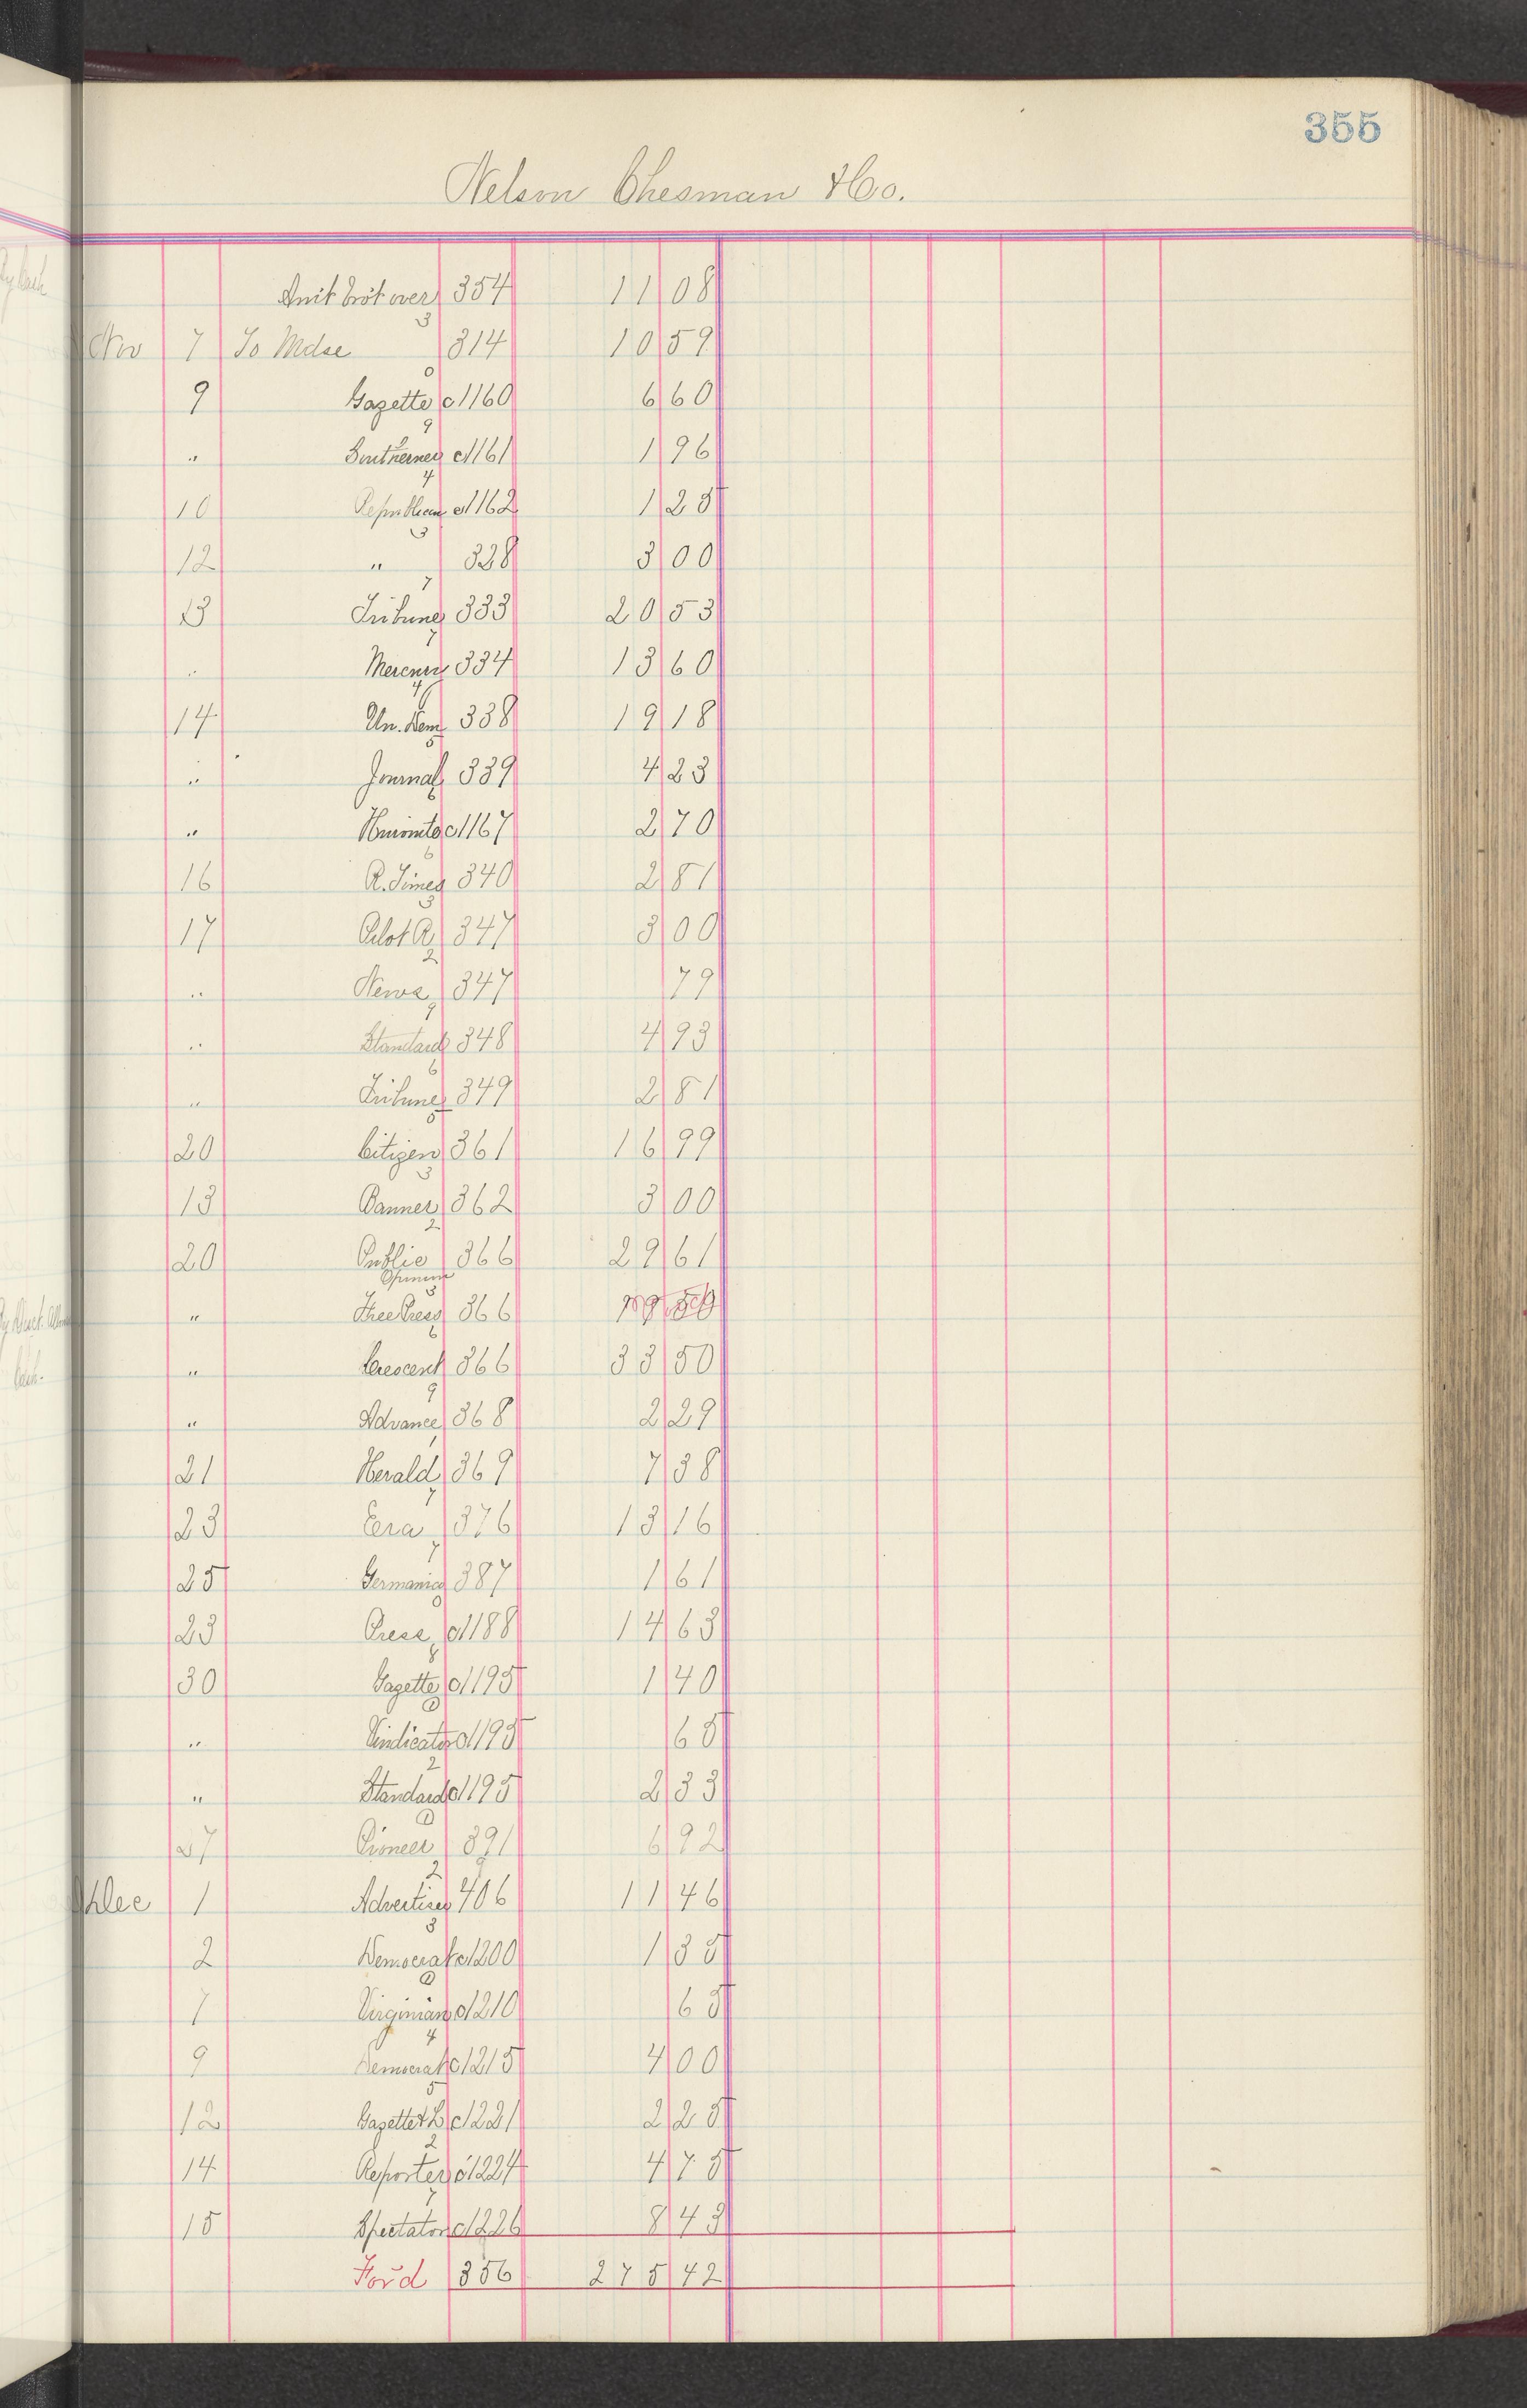 355
Nelson Chesman & Co.
Amt brot over 354 11 08
3
Nov 7 To Mdse 314 10 59
9 Gazette c1160 6 60
9
" Southerner c1161 1 96
4
10 Republican c1162 1 25
3
12 " 328 3 00
7
13 Tribune 333 20 53
7
" Mercury 334 13 60
4
14 Un. Dem 338 19 18
5
" Journal 339 4 23
" c1167 2 70
6
16 R. Times 340 2 81
3
17 Pilot R 347 3 00
2
" News 347 79
9
" Standard 348 4 93
6
" Tribune 349 2 81
20 Citizen 361 16 99
3
13 Banner 362 3 00
2
20 Public 366 29 61
Opinion
3
" Free Press 366
6
" Crescent 366 33 50
9
" Advance 368 2 29
21 Herald 369 7 38
7
23 Era 376 13 16
7
25 Germania 387 1 61
23 Press c1188 14 63
30 Gazette c1195 1 40
" Vindicator c1195 65
2
" Standard c1195 2 33
27 Pioneer 391 6 92
2
Dec 1 Advertiser 406 11 46
3
2 Democrat c1200 1 35
7 Virginian c1210 65
4
9 Democrat c1215 4 00
5
12 Gazette & B c1221 2 25
2
14 Reporter c1224 4 75
7
15 Spectator c1226 8 43
Ford 356 275 42